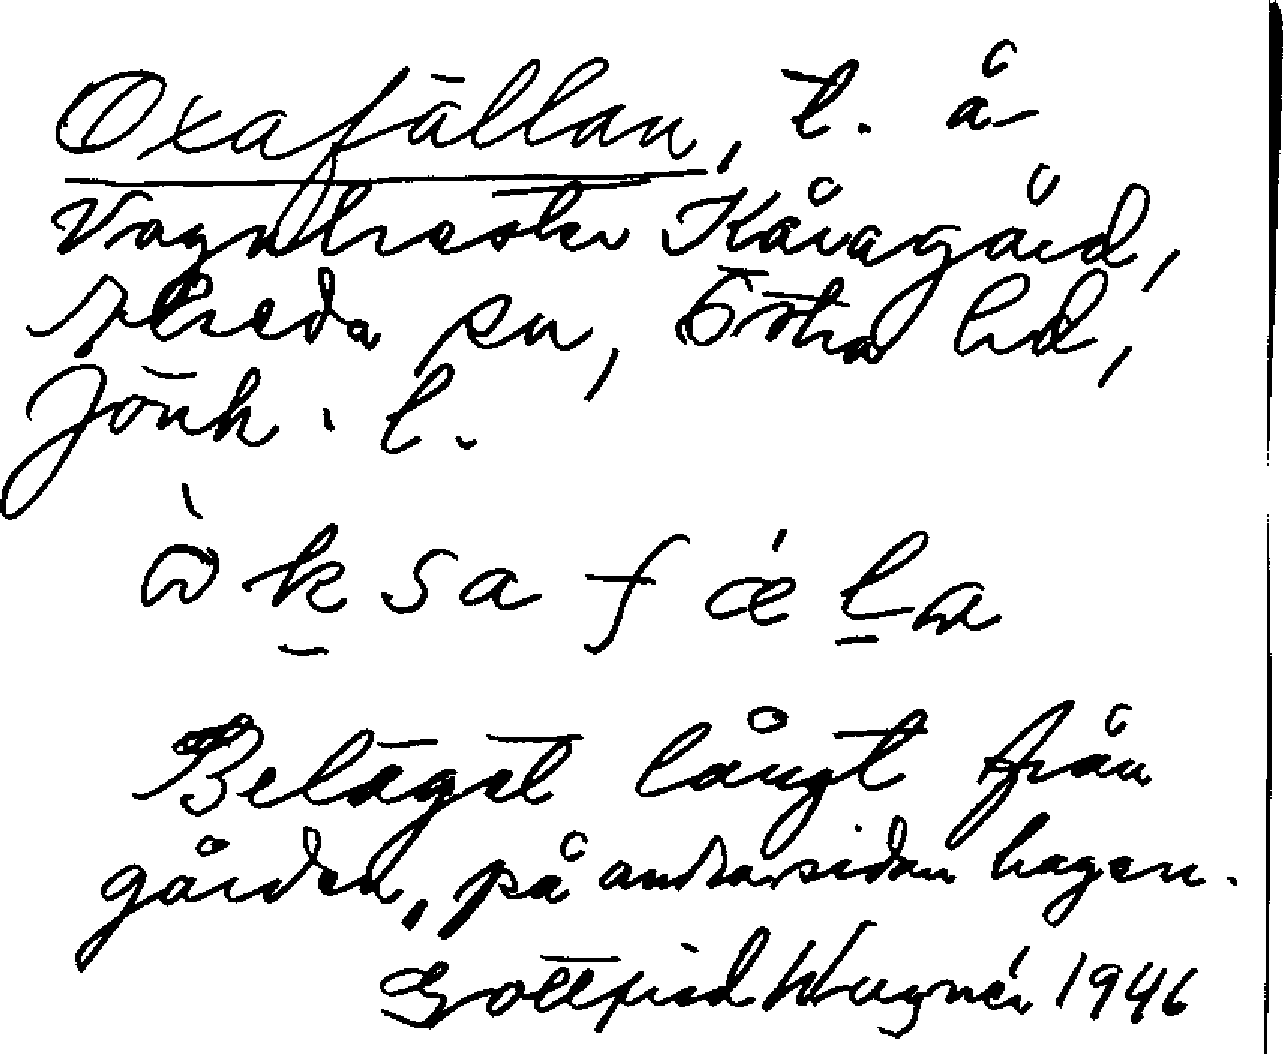 Oxafällan, t. å
Vagnhester Kåragård,
Alseda sn, Östra hd,
Jönk. l.
ò̀ksafǽla
Beläget långt från
gården, på andra sidan hagen.
Gottfrid Wugnér 1946